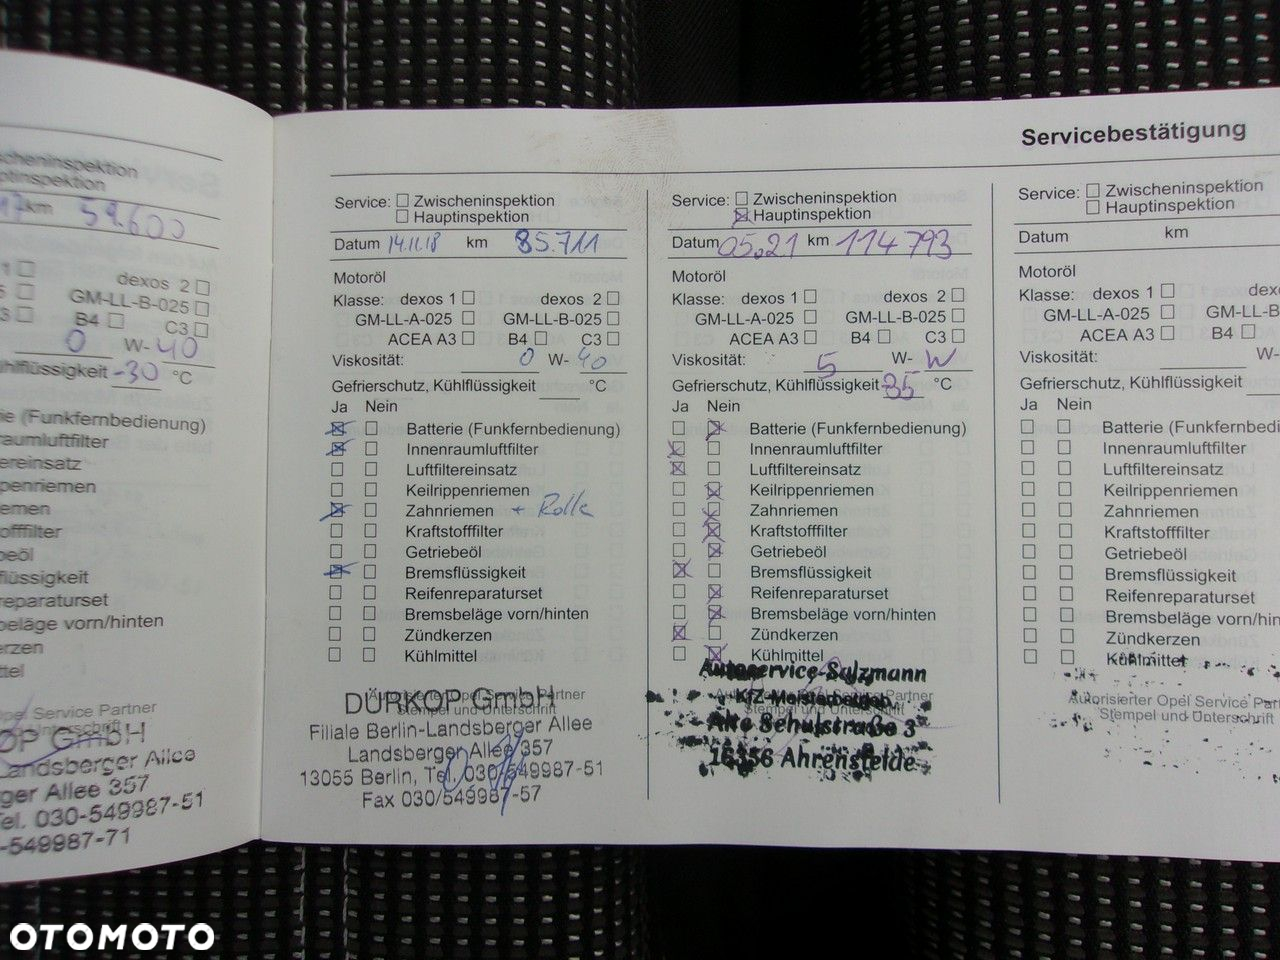 Servicebestätigung
scheninspektion
ptinspektion
17 km 59.600
1 ☐ dexos 2 ☐
5 ☐ GM-LL-B-025 ☐
3 ☐ B4 ☐ C3 ☐
0 W- 40
hlflüssigkeit -30 °C
rie (Funkfernbedienung)
raumluftfilter
ereinsatz
penriemen
emen
offfilter
eöl
flüssigkeit
reparaturset
eläge vorn/hinten
erzen
ttel
Opel Service Partner
Unterschrift
OP GmbH
Landsberger Allee
ger Allee 357
Tel. 030-549987-51
-549987-71
Service: ☐ Zwischeninspektion
☐ Hauptinspektion
Datum 14.11.18 km 85.711
Motoröl
Klasse: dexos 1 ☐ dexos 2 ☐
GM-LL-A-025 ☐ GM-LL-B-025 ☐
ACEA A3 ☐ B4 ☐ C3 ☐
Viskosität: 0 W- 40
Gefrierschutz, Kühlflüssigkeit °C
Ja Nein
☒ ☐ Batterie (Funkfernbedienung)
☒ ☐ Innenraumluftfilter
☐ ☐ Luftfiltereinsatz
☐ ☐ Keilrippenriemen
☒ ☐ Zahnriemen + Rolle
☐ ☐ Kraftstofffilter
☐ ☐ Getriebeöl
☒ ☐ Bremsflüssigkeit
☐ ☐ Reifenreparaturset
☐ ☐ Bremsbeläge vorn/hinten
☐ ☐ Zündkerzen
☐ ☐ Kühlmittel
Autorisierter Opel Service Partner
Stempel und Unterschrift
DÜRKOP GmbH
Filiale Berlin-Landsberger Allee
Landsberger Allee 357
13055 Berlin, Tel. 030/549987-51
Fax 030/549987-57
Service: ☐ Zwischeninspektion
☒ Hauptinspektion
Datum 05.21 km 114793
Motoröl
Klasse: dexos 1 ☐ dexos 2 ☐
GM-LL-A-025 ☐ GM-LL-B-025 ☐
ACEA A3 ☐ B4 ☐ C3 ☐
Viskosität: 5 W- W
Gefrierschutz, Kühlflüssigkeit 35 °C
Ja Nein
☐ ☒ Batterie (Funkfernbedienung)
☒ ☐ Innenraumluftfilter
☒ ☐ Luftfiltereinsatz
☐ ☒ Keilrippenriemen
☐ ☒ Zahnriemen
☐ ☒ Kraftstofffilter
☐ ☒ Getriebeöl
☒ ☐ Bremsflüssigkeit
☐ ☒ Reifenreparaturset
☐ ☒ Bremsbeläge vorn/hinten
☒ ☐ Zündkerzen
☐ ☒ Kühlmittel
Autorisierter Opel Service Partner
Stempel und Unterschrift
Autoservice-Salzmann
KFZ-Meisterbetrieb
Alte Schulstraße 3
16356 Ahrensfelde
Service: ☐ Zwischeninspektion
☐ Hauptinspektion
Datum km
Motoröl
Klasse: dexos 1 ☐ dexo
GM-LL-A-025 ☐ GM-LL-B
ACEA A3 ☐ B4 ☐
Viskosität: W-
Gefrierschutz, Kühlflüssigkeit
Ja Nein
☐ ☐ Batterie (Funkfernbedi
☐ ☐ Innenraumluftfilter
☐ ☐ Luftfiltereinsatz
☐ ☐ Keilrippenriemen
☐ ☐ Zahnriemen
☐ ☐ Kraftstofffilter
☐ ☐ Getriebeöl
☐ ☐ Bremsflüssigkeit
☐ ☐ Reifenreparaturset
☐ ☐ Bremsbeläge vorn/hin
☐ ☐ Zündkerzen
☐ ☐ Kühlmittel
Autorisierter Opel Service Par
Stempel und Unterschrift
OTOMOTO